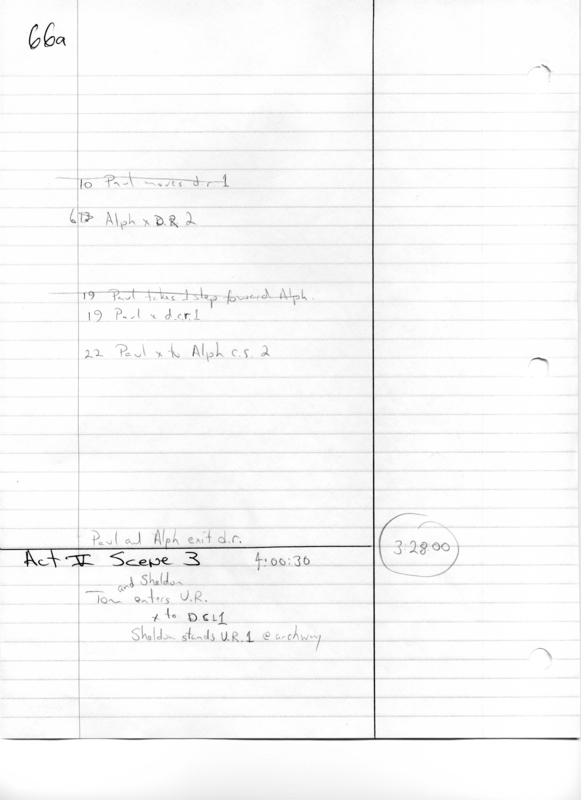 66a
10 Paul moves d.r 1
Alph x D.R 2
19 Paul takes 1 step forward Alph.
19 Paul x d.cr.1
22 Paul x to Alph c.s. 2
Paul and Alph exit d.r.
3:28:00
Act V Scene 3 4:00:30
and Sheldon
Tom enters U.R.
x to DCL1
Sheldon stands U.R.1 @ archway